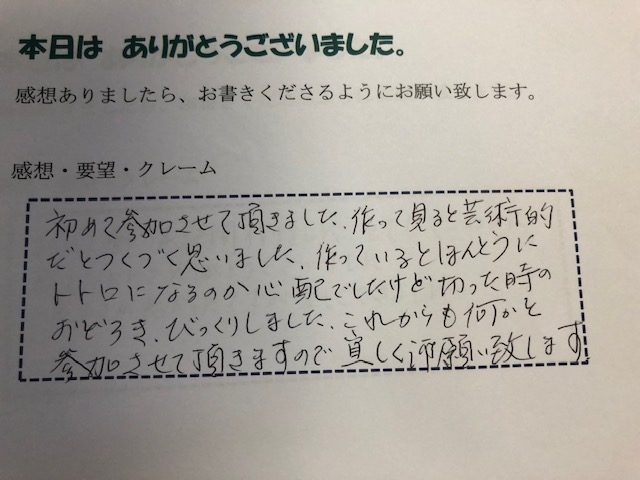 本日は ありがとうございました。
感想ありましたら、お書きくださるようにお願い致します。
感想・要望・クレーム
初めて参加させて頂きました、作って見ると芸術的
だとつくづく思いました、作っているとほんとうに
トトロになるのか心配でしたけど切った時の
おどろき、びっくりしました、これからも何かと
参加させて頂きますので宜しく御願い致します